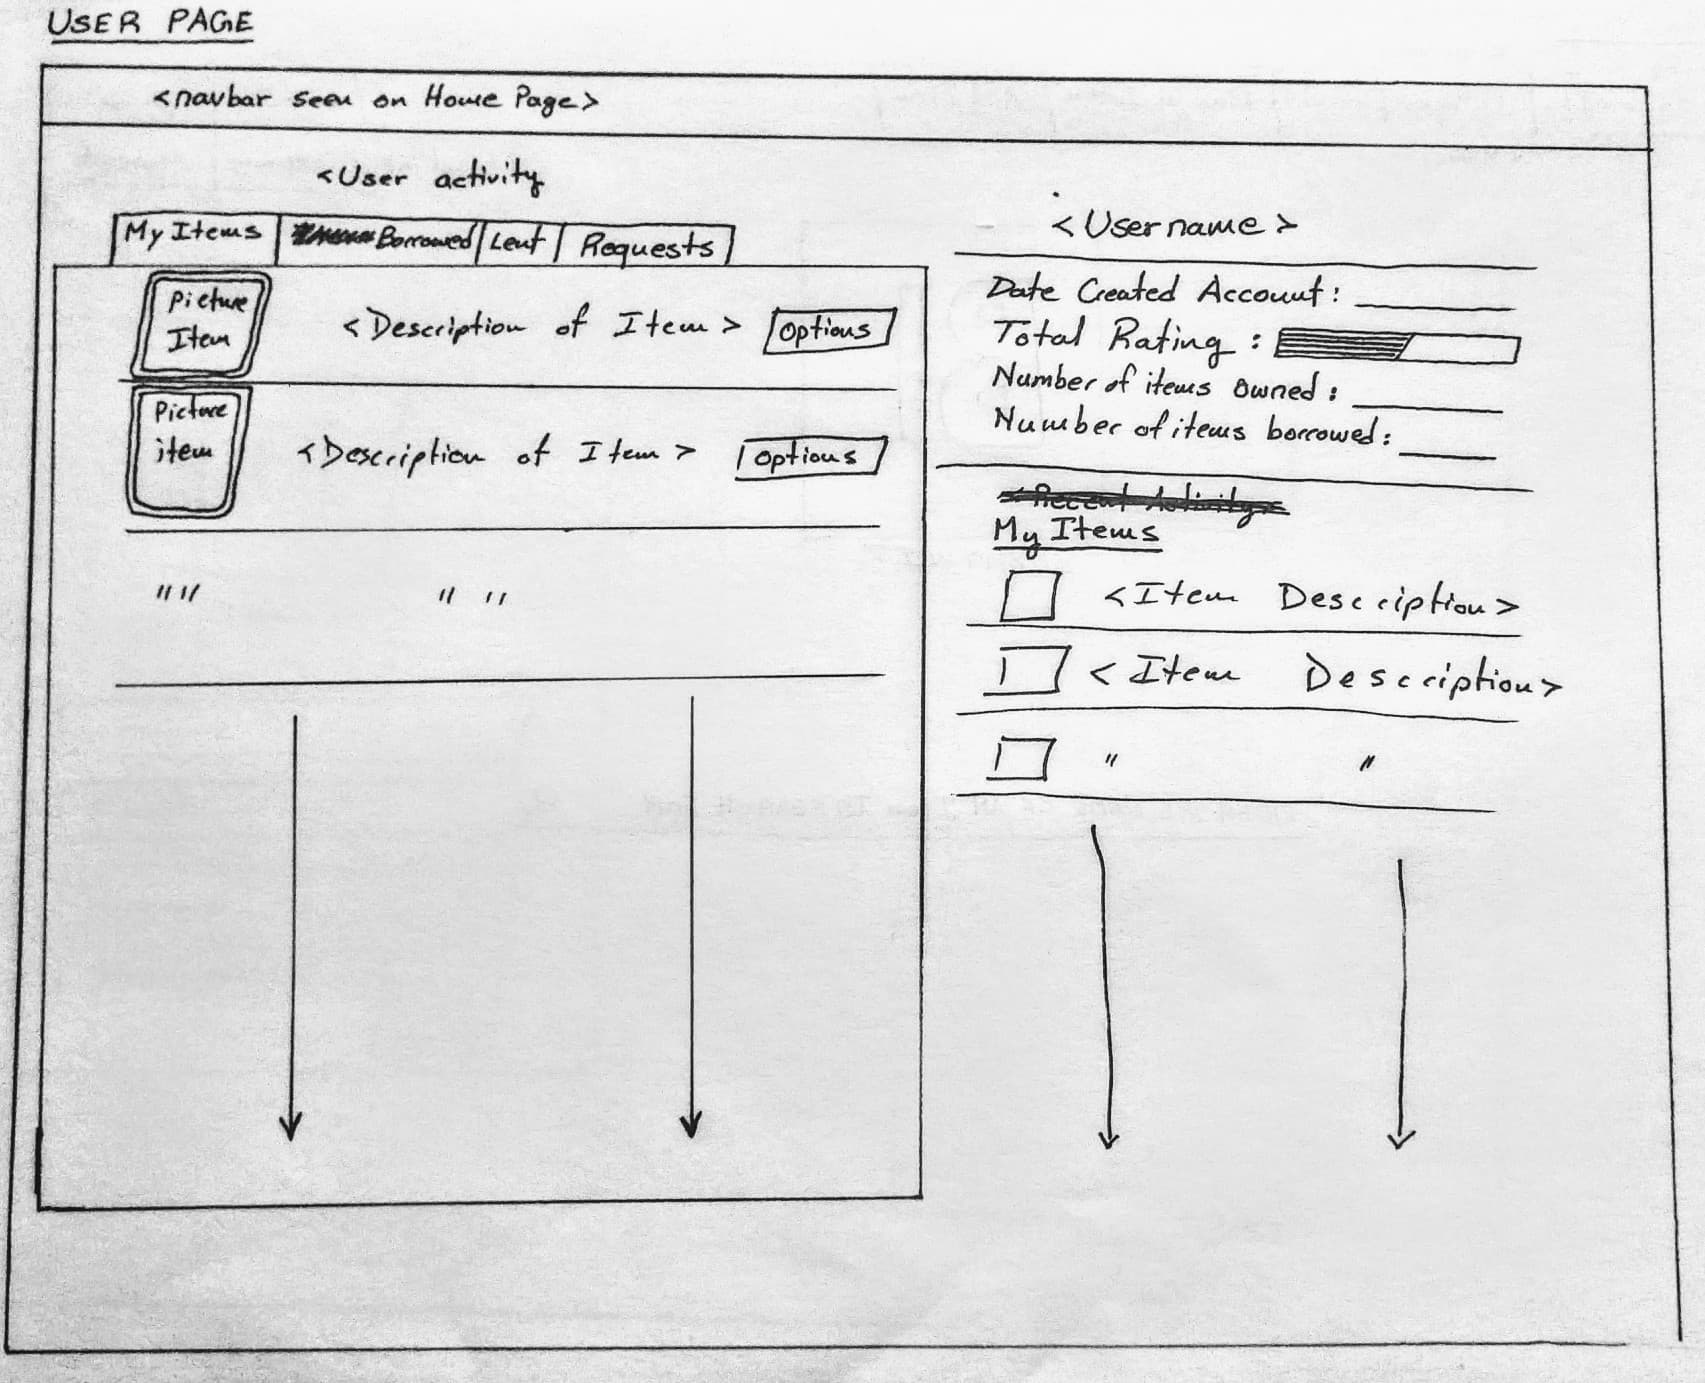 USER PAGE
<navbar seen on Home Page>
<User activity
My Items
Borrowed
Lent
Requests
Picture
Item
<Description of Item>
Options
Picture
item
<Description of Item>
Options
" "
" "
<Username>
Date Created Account:
Total Rating:
Number of items owned:
Number of items borrowed:
<Recent Activity>
My Items
<Item Description>
<Item Description>
" "